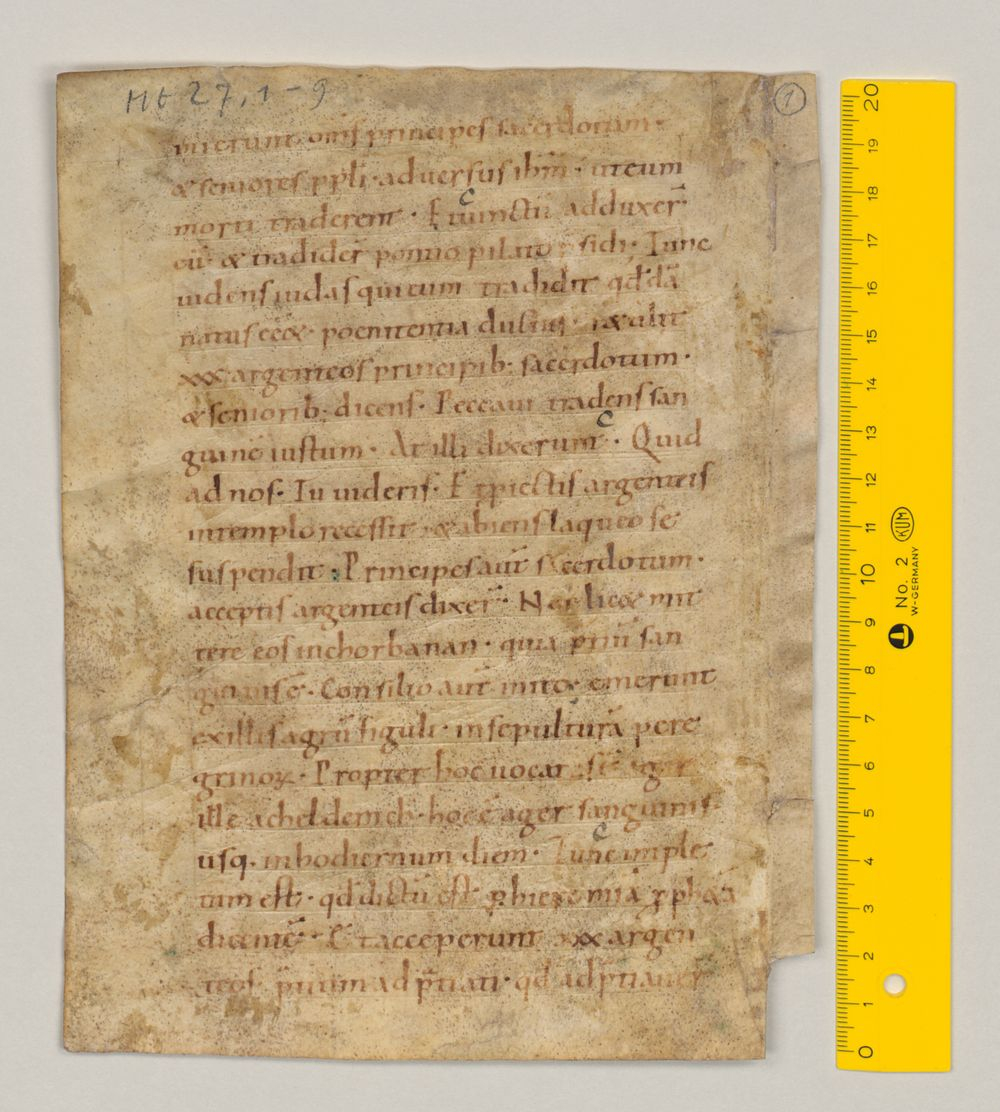 Mt 27, 1-9
1
inierunt oms principes sacerdotum·
& seniores ppli· adversus ihm· uteum
morti traderent· Et uinctū adduxer̄
eū· & tradider̄ pontio pilato p̄sidi· Tunc
uidens iudas quieum tradidit qd dā
natus eē&· poenitentia ductus· r&ulit
xxx argenteos principib· sacerdotum·
&seniorib· dicens· Peccaui tradens san
guinē iustum· At illi dixerunt· Quid
ad nos· Tu uideris· Et piectis argenteis
intemplo recessit· & abiens laqueo se
suspendit· Principes aut̄ sacerdotum·
acceptis argenteis dixer̄· Non lic& mit
tere eos inchorbanan· quia p̄tiū san
guinis ē· Consilio aut̄ inito· emerunt
exillis agrū figuli· insepulturā pere
grinoꝝ· Propter hoc uocat; st̄ ager
ille acheldemch· hoc ē ager sanguinis·
usq· inhodiernum diem· Tunc imple
tum est· qd dictū est p hieremiā pph&ā
dicentē· Et acceperunt xxx argen
teos· p̄tium adp̄tiati· qd adp̄tiauer̄
20
19
18
17
16
15
14
13
12
11
10
9
8
7
6
5
4
3
2
1
0
KUM
No. 2
W-GERMANY